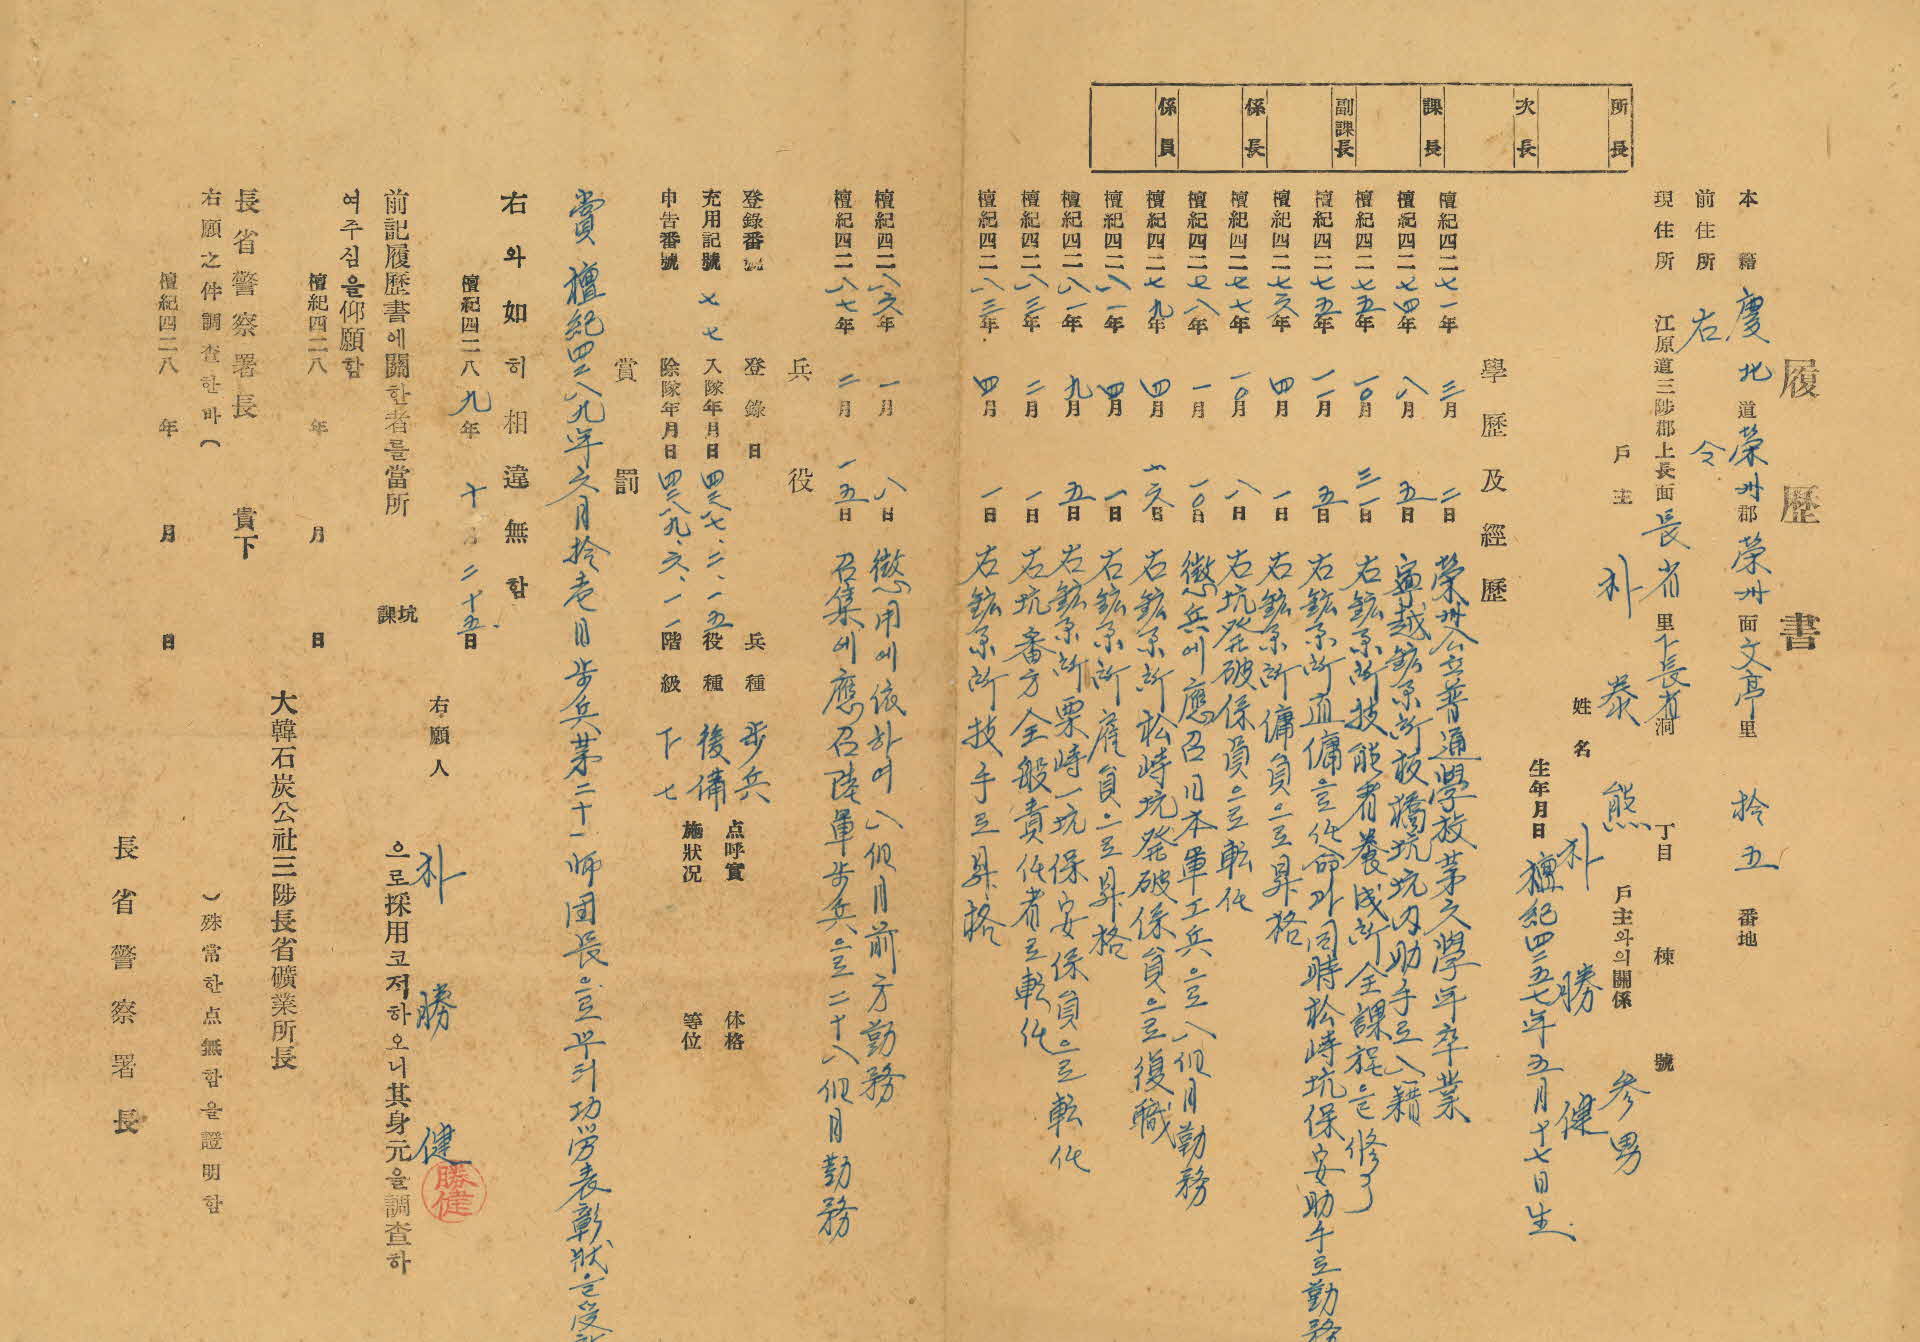 履歴書
本籍 慶北道 榮州郡 榮州面 文亭里 拾五番地
前住所 右仝
現住所 江原道三陟郡上長面 長省里 下長省洞 丁目 棟 號
戶主 朴泰熊 戶主와의關係 參男
姓名 朴勝健
生年月日 檀紀四二五七年五月十七日生
學歷及經歷
檀紀四二七一年 三月 二日 榮州公立普通學校第六學年卒業
檀紀四二七四年 八月 五日 寧越鉱業所 板橋坑坑內助手로入籍
檀紀四二七五年 一〇月 三一日 右鉱業所技能者養成所全課程을修了
檀紀四二七五年 一一月 五日 右鉱業所直傭을任命과同時松峙坑保安助手로勤務
檀紀四二七六年 四月 一日 右鉱業所傭員으로昇格
檀紀四二七七年 一〇月 八日 右坑発破係員으로転任
檀紀四二七八年 一月 一〇日 懲兵에應召日本軍工兵으로八個月勤務
檀紀四二七九年 四月 一六日 右鉱業所松峙坑発破係員으로復職
檀紀四二八一年 四月 一日 右鉱業所雇員으로昇格
檀紀四二八一年 九月 五日 右鉱業所栗峙一坑保安係員으로転任
檀紀四二八三年 二月 一日 右坑番方全般責任者로転任
檀紀四二八三年 四月 一日 右鉱業所技手로昇格
檀紀四二八六年 一月 八日 懲用에依하여八個月前方勤務
檀紀四二八七年 二月 一五日 召集에應召陸軍步兵으로二十八個月勤務
兵役
登錄番號 登錄日 兵種 步兵 点呼實 体格
充用記號 七七 入隊年月日 四二八七.二.一五 役種 後備 施狀況 等位
申告番號 除隊年月日 四二八九.六.一一 階級 下七
賞罰
賞 檀紀四二八九年六月拾壱日步兵第二十一師団長으로부터功労表彰狀을受
右와如히相違無함
檀紀四二八九年 十月 二十五日
右願人 朴勝健
勝健
前記履歷書에關한者를當所 坑課 으로採用코저하오니其身元을調査하
여주심을仰願함
檀紀四二八 年 月 日
大韓石炭公社三陟長省礦業所長
長省警察署長 貴下
右願之件調査한바( )殊常한点無함을證明함
檀紀四二八 年 月 日
長省警察署長
所長
次長
課長
副課長
係長
係員